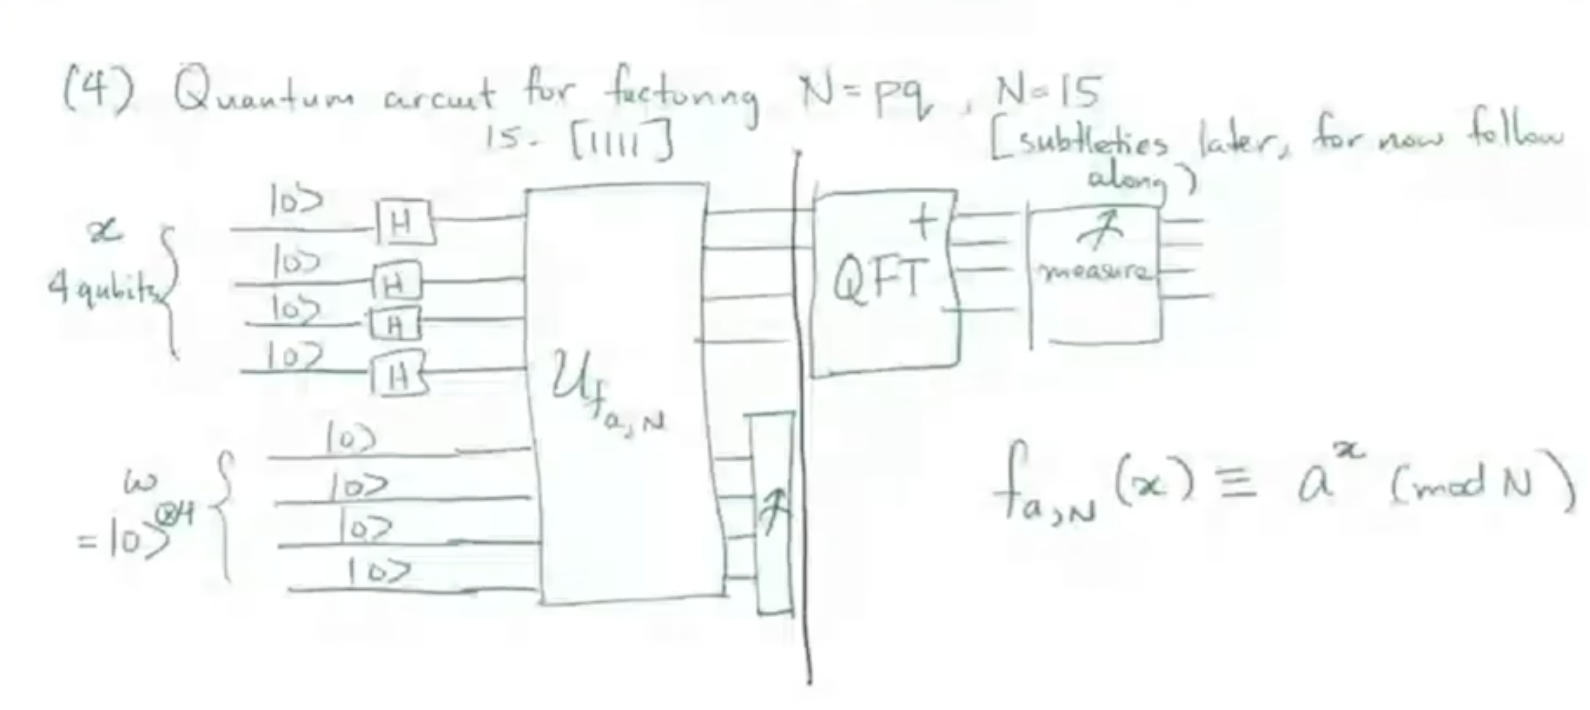 (4) Quantum circuit for factoring N=pq, N=15
15- [1111]
[subtleties later, for now follow
along)
x
4 qubits
|0> H
|0> H
|0> H
|0> H
U_{f_{a,N}}
QFT†
measure
w
=|0>^{⊗4}
|0>
|0>
|0>
|0>
f_{a,N}(x) ≡ a^x (mod N)